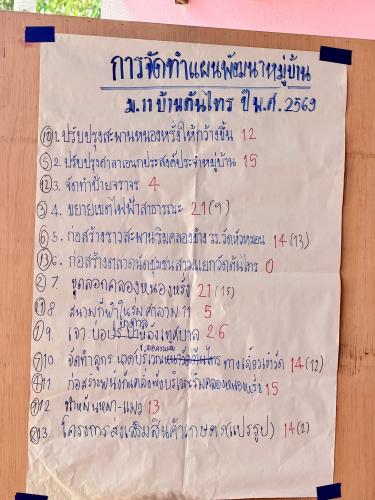 การจัดทำแผนพัฒนาหมู่บ้าน
ม.11 บ้านต้นไทร ปี พ.ศ. 2569
10 1. ปรับปรุงสะพานหนองหรั่งให้กว้างขึ้น 12
5 2. ปรับปรุงศาลาเอนกประสงค์ประจำหมู่บ้าน 15
12 3. จัดทำป้ายจราจร 4
3 4. ขยายเขตไฟฟ้าสาธารณะ 21 (9)
6 5. ก่อสร้างราวสะพานริมคลองข้าง รร.วัดหัวหมอน 14 (13)
13 6. ก่อสร้างตลาดนัดชุมชนสามแยกวัดต้นไทร 0
2 7. ขุดลอกคลองหนองหรั่ง 21 (15)
11 8. สนามกีฬาในร่ม ศาลา ม 11 5
1 9. เจาะบ่อบาดาล หลังเทศบาล 26
7 10. จัดทำจุดกร ทางเลี้ยววัด 14 (12)
4 11. ก่อสร้างผนังกันตลิ่งพังบริเวณริมคลองหนองหรั่ง 15
9 12. ทำหมันหมา-แมว 13
8 13. โครงการส่งเสริมสินค้าเกษตร (แปรรูป) 14 (2)